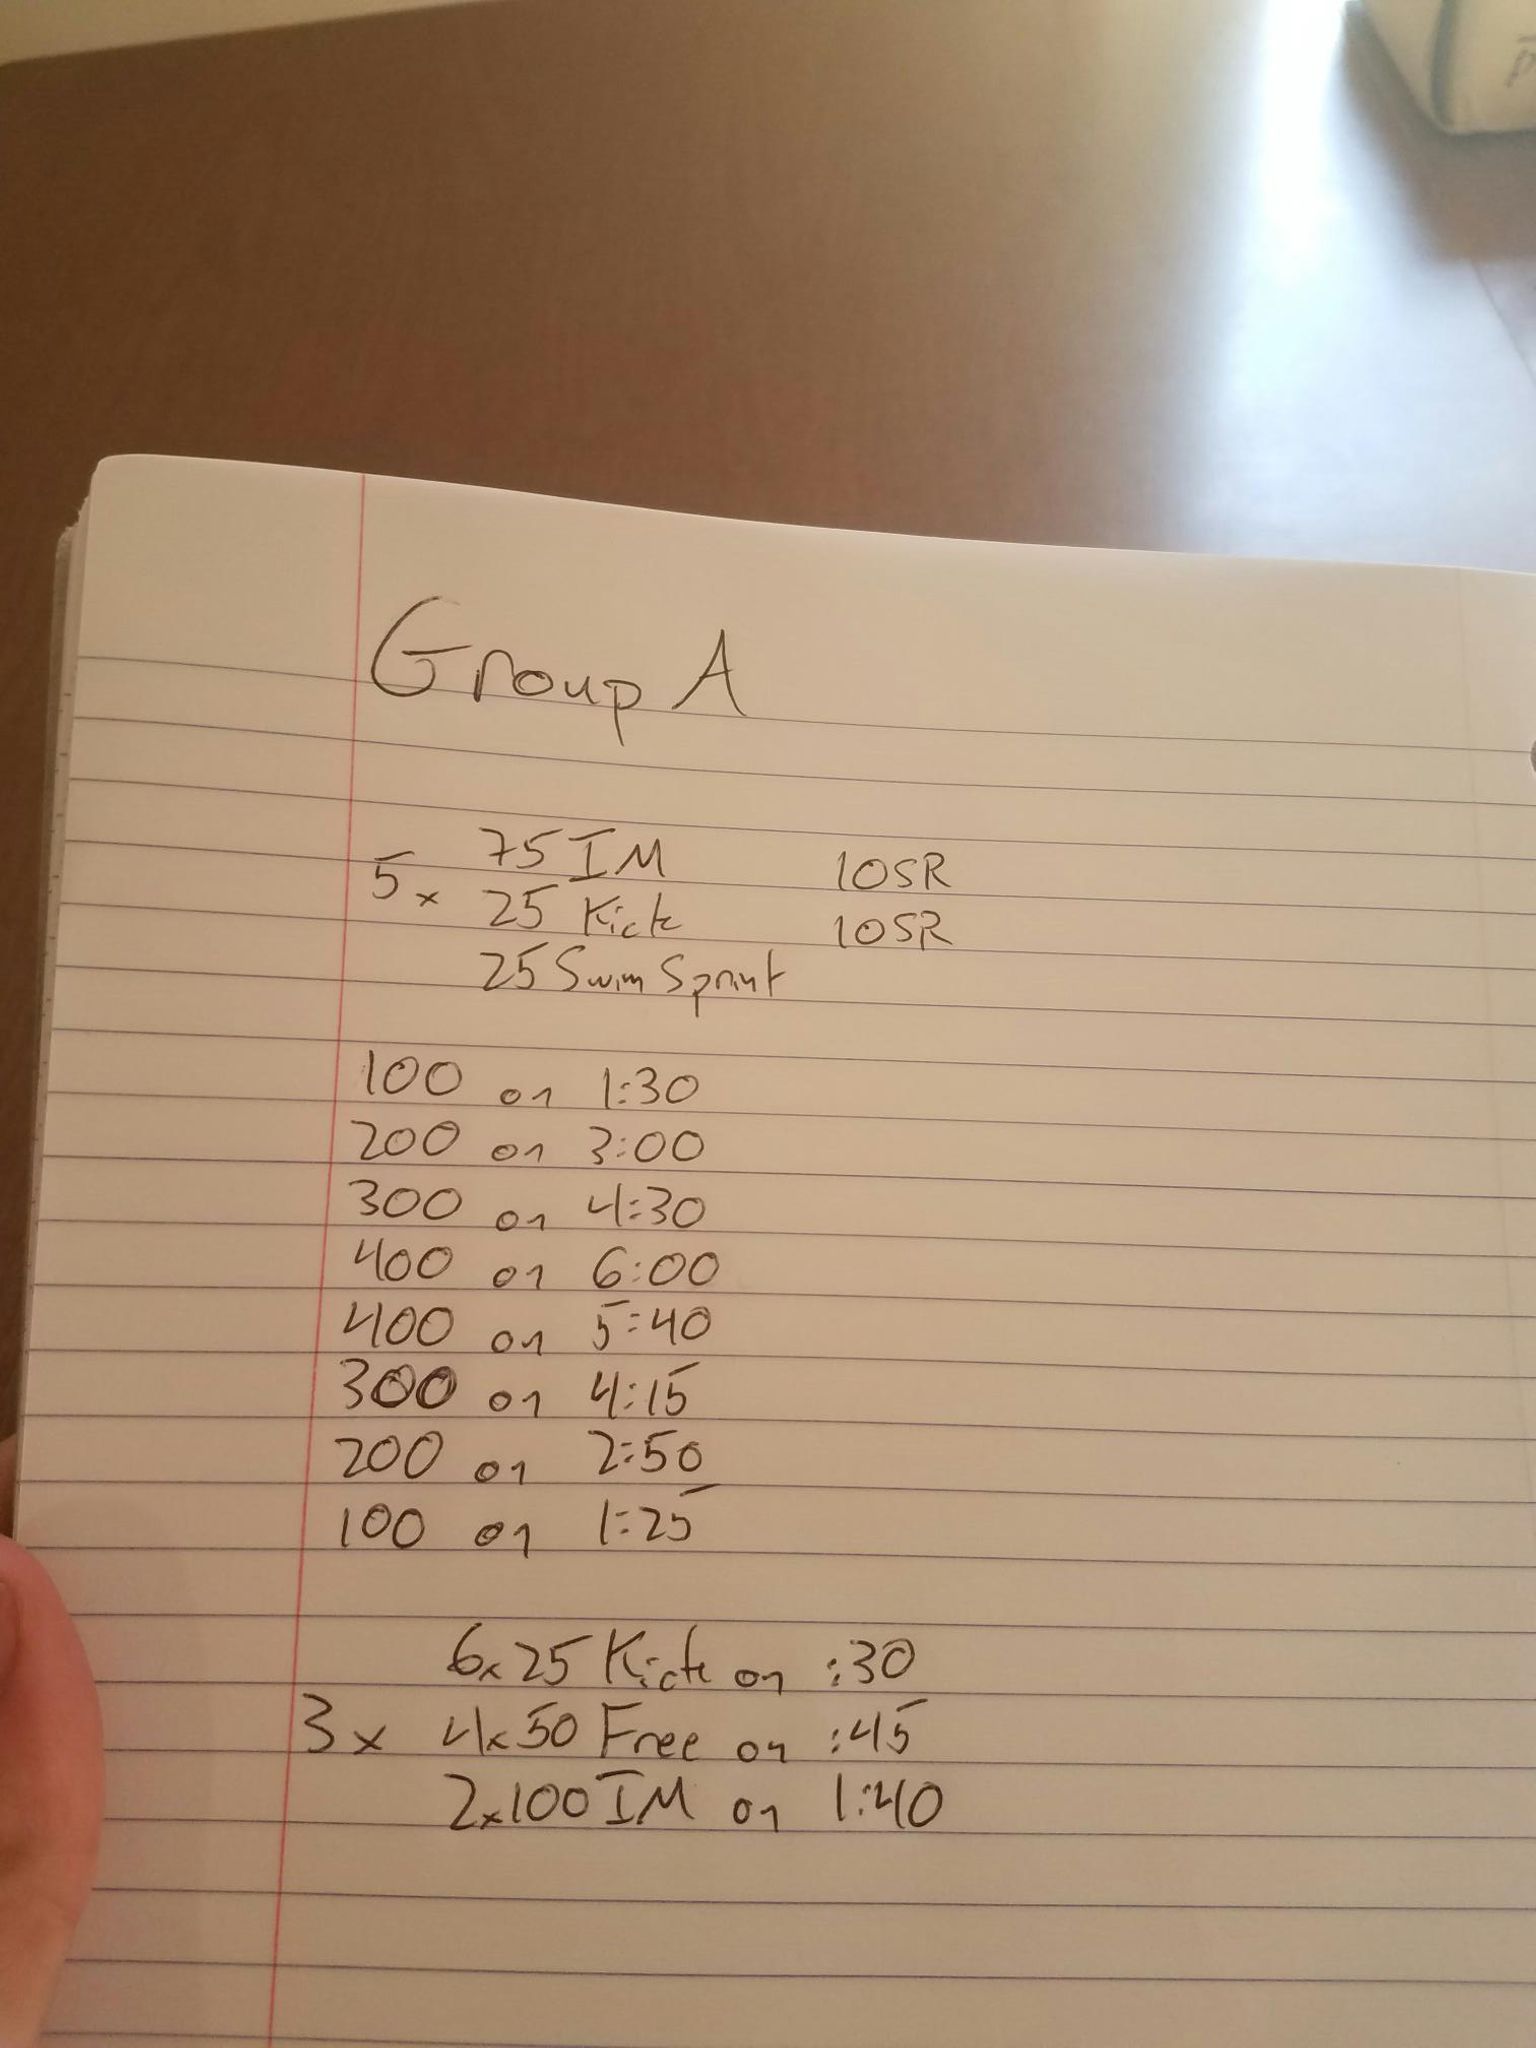 Group A
75 IM 10SR
5x 25 Kick 10SR
25 Swim Sprint
100 on 1:30
200 on 3:00
300 on 4:30
400 on 6:00
400 on 5:40
300 on 4:15
200 on 2:50
100 on 1:25
6x25 Kick on :30
3x 4x50 Free on :45
2x100 IM on 1:40